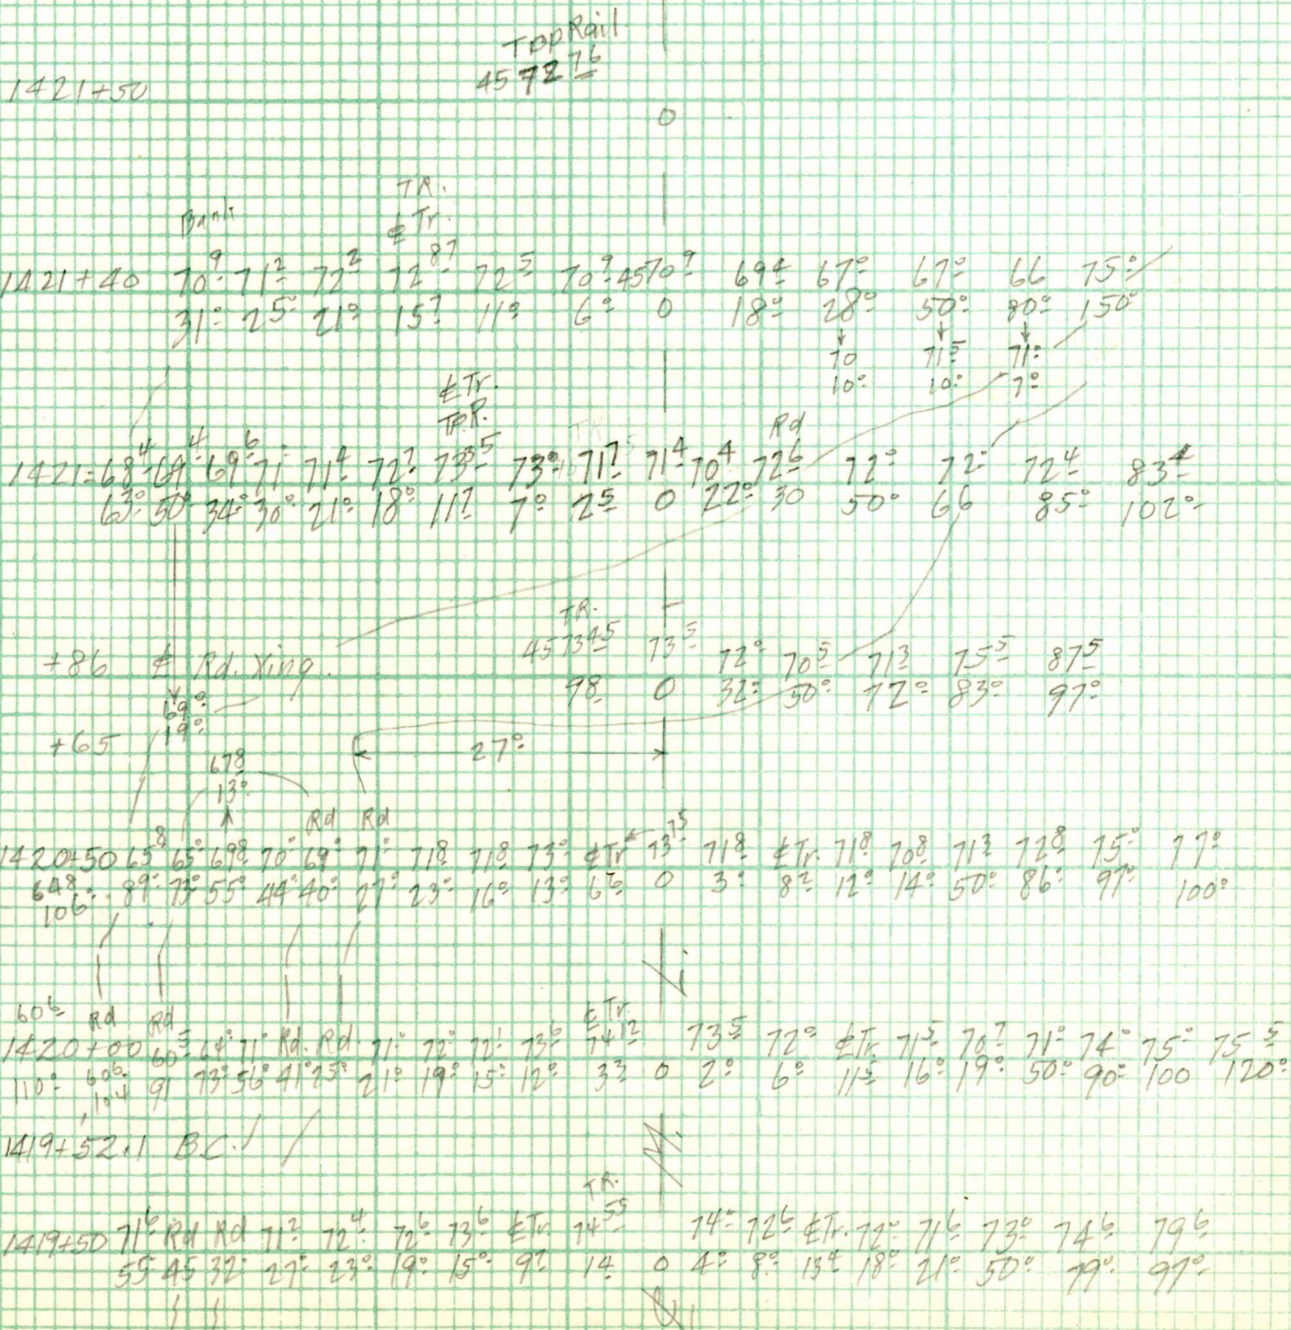 Top Rail
1421+50 4572 76
0
T.R.
Bank ℄ Tr.
1421+40 70⁹ 71² 72² 72⁸⁷ 72⁵ 70⁹ 4570⁹ 69⁴ 67⁰ 67⁰ 66 75⁰
31⁰ 25⁰ 21⁰ 15⁷ 11⁹ 6⁰ 0 18⁰ 28⁰ 50⁰ 80⁰ 150⁰
70 71⁵ 71⁰
10⁰ 10⁰ 7⁰
℄ Tr.
T.R. Rd
1421 68⁴ 69⁴ 69⁶ 71 71⁴ 72⁷ 73⁵⁵ 73⁰ 71⁷ 71⁴ 70⁴ 72⁶ 72⁰ 72⁰ 72⁴ 83⁴
63⁰ 50⁰ 34⁰ 30⁰ 21⁰ 18⁰ 11⁷ 7⁰ 2⁵ 0 22⁰ 30 50⁰ 66 85⁰ 102⁰
T.R.
+86 ℄ Rd. Xing. 4573⁴⁵ 73⁵ 72⁰ 70⁵ 71³ 75⁵ 87⁵
98 0 32⁰ 50⁰ 72⁰ 83⁰ 97⁰
69⁰
19⁰
+65 27⁰
67⁸
13⁰
Rd Rd
1420+50 65⁸ 65⁰ 69⁸ 70⁰ 69⁰ 71⁰ 71⁸ 71⁸ 73⁰ ℄ Tr 73⁷⁵ 71⁸ ℄ Tr. 71⁸ 70⁸ 71³ 72⁸ 75⁰ 77⁰
64⁸ 89⁰ 73⁰ 55⁰ 44⁰ 40⁰ 27⁰ 23⁰ 16⁰ 13⁰ 6⁶ 0 3⁰ 8² 12⁰ 14⁰ 50⁰ 86⁰ 97⁰ 100⁰
106⁰
L.
60⁶ Rd Rd ℄ Tr.
1420+00 60⁵ 64⁰ 71⁰ Rd. Rd. 71⁰ 72⁰ 72¹ 73⁶ 74¹² 73⁵ 72⁰ ℄ Tr 71⁵ 70⁷ 71⁰ 74⁰ 75⁰ 75⁵
110⁰ 60⁶ 91 73⁰ 56⁰ 41⁰ 25⁰ 21⁰ 19⁰ 15⁰ 12⁰ 3³ 0 2⁰ 6⁰ 11⁵ 16⁰ 19⁰ 50⁰ 90⁰ 100 120⁰
104
1419+52.1 B.C. M.
T.R.
1419+50 71⁶ Rd Rd 71² 72⁴ 72⁶ 73⁶ ℄ Tr. 74⁵⁵ 74⁰ 72⁶ ℄ Tr. 72⁰ 71⁶ 73⁰ 74⁶ 79⁶
55 45 32⁰ 27⁰ 23⁰ 19⁰ 15⁰ 9² 14 0 4⁰ 8⁰ 13⁴ 18⁰ 21⁰ 50⁰ 79⁰ 97⁰